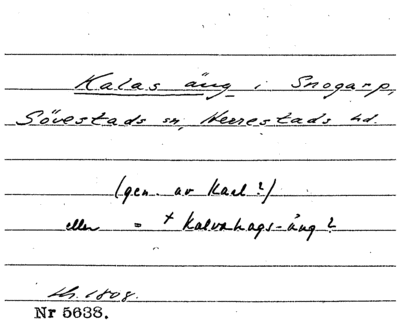 Kalas äng i Snogarp,
Sövestads sn, Herrestads hd.
(gen. av Karl?)
eller = + Kalvahags-äng?
1808.
Nr 5638.